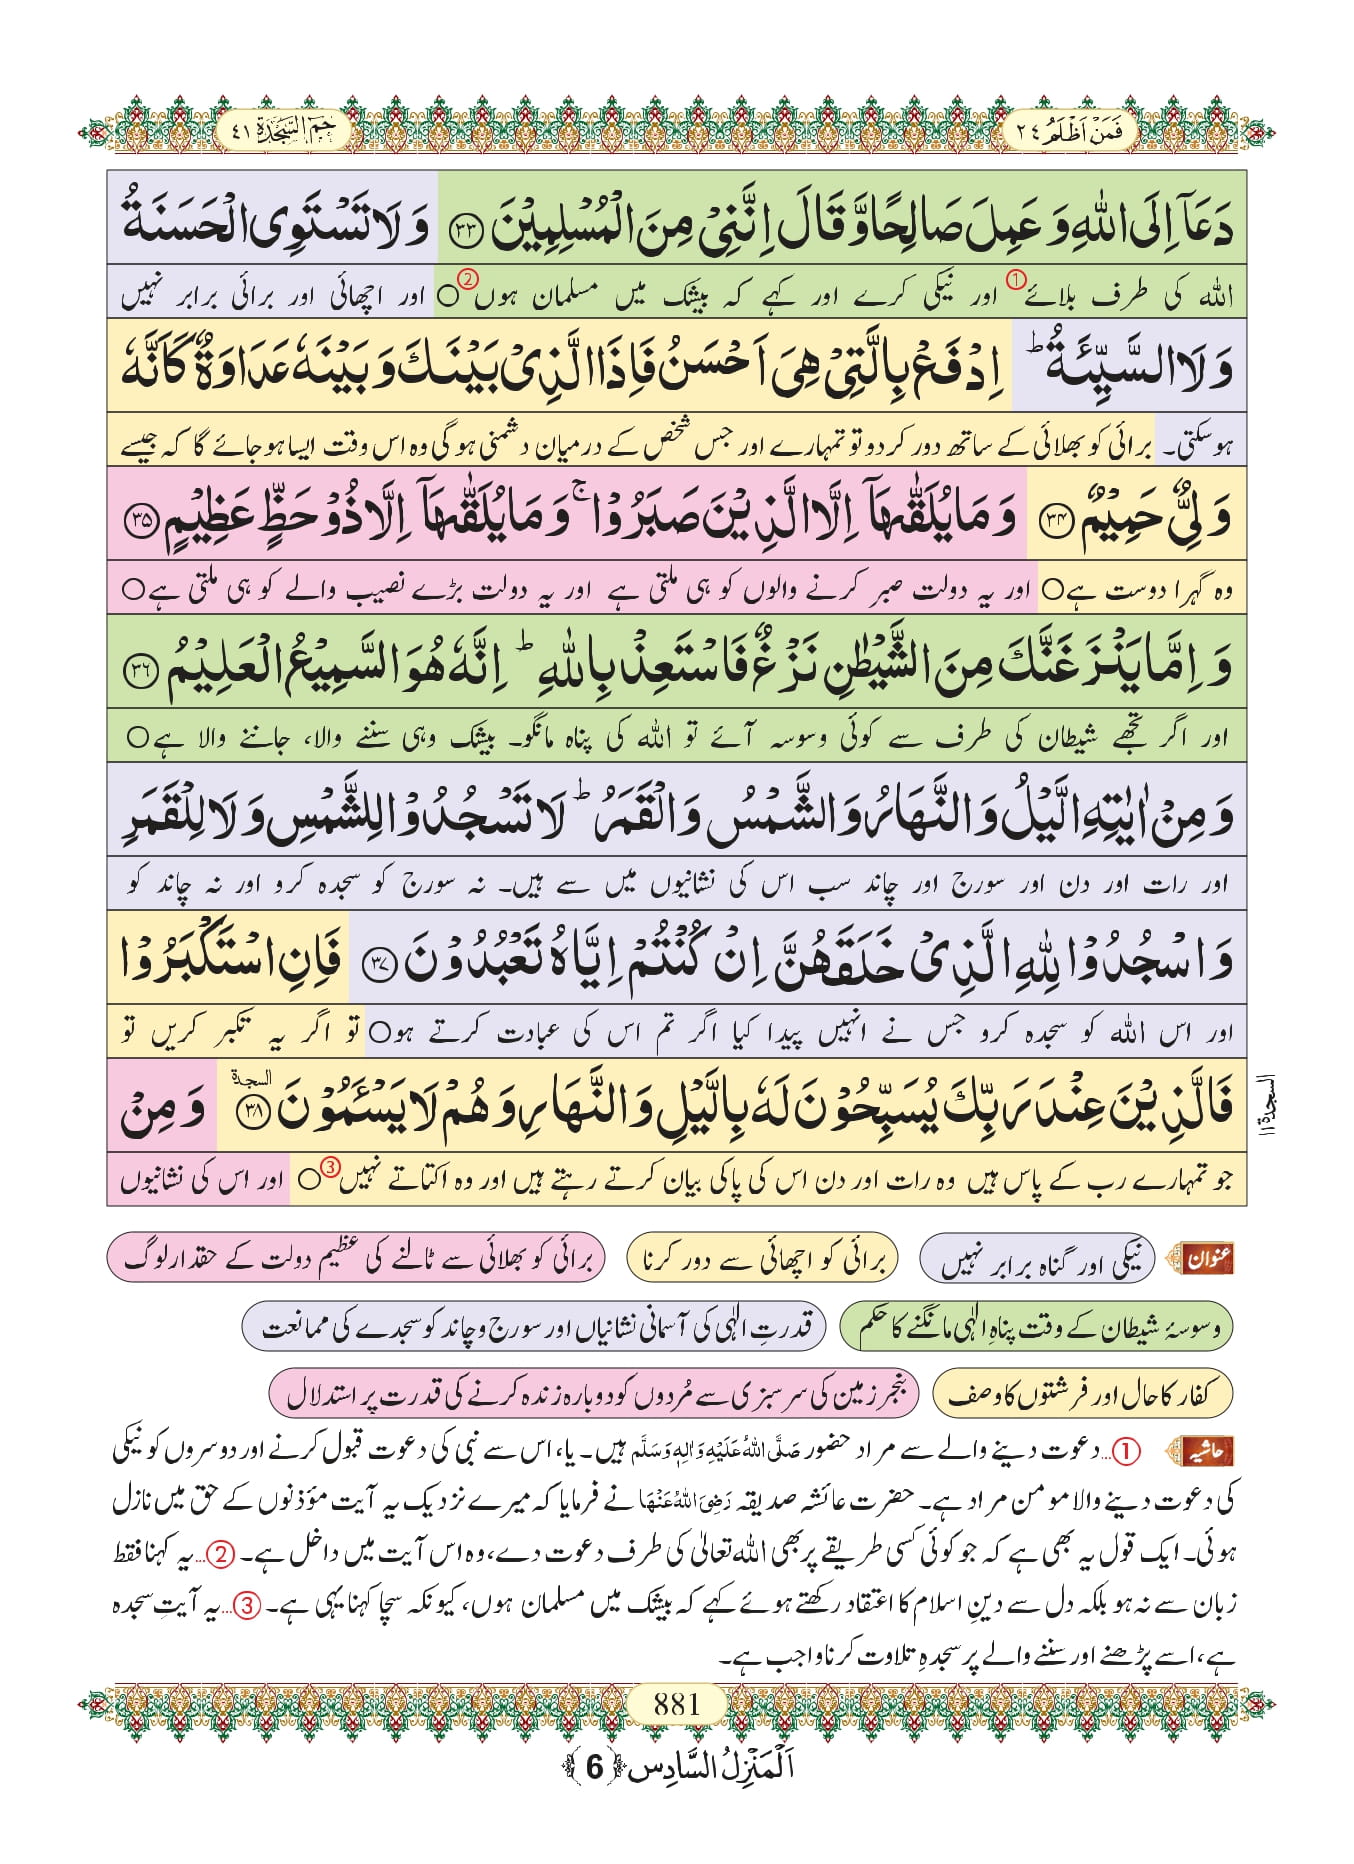 فَمَنْ اَظْلَمُ ٢٤
حٰمٓ السَّجْدَة ٤١
دَعَاۤ اِلَى اللّٰهِ وَ عَمِلَ صَالِحًا وَّ قَالَ اِنَّنِیْ مِنَ الْمُسْلِمِیْنَ ﴿۳۳﴾ وَ لَا تَسْتَوِی الْحَسَنَةُ
اللہ کی طرف بلائے① اور نیکی کرے اور کہے کہ بیشک میں مسلمان ہوں②○ اور اچھائی اور برائی برابر نہیں
وَ لَا السَّیِّئَةُ ؕ اِدْفَعْ بِالَّتِیْ هِیَ اَحْسَنُ فَاِذَا الَّذِیْ بَیْنَكَ وَ بَیْنَهٗ عَدَاوَةٌ كَاَنَّهٗ
ہوسکتی۔ برائی کو بھلائی کے ساتھ دور کردو تو تمہارے اور جس شخص کے درمیان دشمنی ہوگی وہ اس وقت ایسا ہوجائے گا کہ جیسے
وَلِیٌّ حَمِیْمٌ ﴿۳۴﴾ وَ مَا یُلَقّٰىهَاۤ اِلَّا الَّذِیْنَ صَبَرُوْا ۚ وَ مَا یُلَقّٰىهَاۤ اِلَّا ذُوْ حَظٍّ عَظِیْمٍ ﴿۳۵﴾
وہ گہرا دوست ہے○ اور یہ دولت صبر کرنے والوں کو ہی ملتی ہے اور یہ دولت بڑے نصیب والے کو ہی ملتی ہے○
وَ اِمَّا یَنْزَغَنَّكَ مِنَ الشَّیْطٰنِ نَزْغٌ فَاسْتَعِذْ بِاللّٰهِ ؕ اِنَّهٗ هُوَ السَّمِیْعُ الْعَلِیْمُ ﴿۳۶﴾
اور اگر تجھے شیطان کی طرف سے کوئی وسوسہ آئے تو اللہ کی پناہ مانگو۔ بیشک وہی سننے والا، جاننے والا ہے○
وَ مِنْ اٰیٰتِهِ الَّیْلُ وَ النَّهَارُ وَ الشَّمْسُ وَ الْقَمَرُ ؕ لَا تَسْجُدُوْا لِلشَّمْسِ وَ لَا لِلْقَمَرِ
اور رات اور دن اور سورج اور چاند سب اس کی نشانیوں میں سے ہیں۔ نہ سورج کو سجدہ کرو اور نہ چاند کو
وَ اسْجُدُوْا لِلّٰهِ الَّذِیْ خَلَقَهُنَّ اِنْ كُنْتُمْ اِیَّاهُ تَعْبُدُوْنَ ﴿۳۷﴾ فَاِنِ اسْتَكْبَرُوْا
اور اس اللہ کو سجدہ کرو جس نے انہیں پیدا کیا اگر تم اس کی عبادت کرتے ہو○ تو اگر یہ تکبر کریں تو
فَالَّذِیْنَ عِنْدَ رَبِّكَ یُسَبِّحُوْنَ لَهٗ بِالَّیْلِ وَ النَّهَارِ وَ هُمْ لَا یَسْـَٔمُوْنَ ﴿۳۸﴾ السجدة وَ مِنْ
السجدة ۱۱
جو تمہارے رب کے پاس ہیں وہ رات اور دن اس کی پاکی بیان کرتے رہتے ہیں اور وہ اکتاتے نہیں③○ اور اس کی نشانیوں
عنوان نیکی اور گناہ برابر نہیں برائی کو اچھائی سے دور کرنا برائی کو بھلائی سے ٹالنے کی عظیم دولت کے حقدار لوگ
وسوسۂ شیطان کے وقت پناہِ الٰہی مانگنے کا حکم قدرتِ الٰہی کی آسمانی نشانیاں اور سورج و چاند کو سجدے کی ممانعت
کفار کا حال اور فرشتوں کا وصف بنجر زمین کی سرسبزی سے مُردوں کو دوبارہ زندہ کرنے کی قدرت پر استدلال
حاشیہ ①...دعوت دینے والے سے مراد حضور صَلَّی اللہُ عَلَیْہِ وَاٰلِہٖ وَسَلَّم ہیں۔ یا، اس سے نبی کی دعوت قبول کرنے اور دوسروں کو نیکی
کی دعوت دینے والا مومن مراد ہے۔ حضرت عائشہ صدیقہ رَضِیَ اللہُ عَنْہَا نے فرمایا کہ میرے نزدیک یہ آیت مؤذنوں کے حق میں نازل
ہوئی۔ ایک قول یہ بھی ہے کہ جو کوئی کسی طریقے پر بھی اللہ تعالیٰ کی طرف دعوت دے، وہ اس آیت میں داخل ہے۔ ②...یہ کہنا فقط
زبان سے نہ ہو بلکہ دل سے دینِ اسلام کا اعتقاد رکھتے ہوئے کہے کہ بیشک میں مسلمان ہوں، کیونکہ سچا کہنا یہی ہے۔ ③...یہ آیتِ سجدہ
ہے، اسے پڑھنے اور سننے والے پر سجدہِ تلاوت کرنا واجب ہے۔
881
اَلْمَنْزِلُ السَّادِس ﴿6﴾